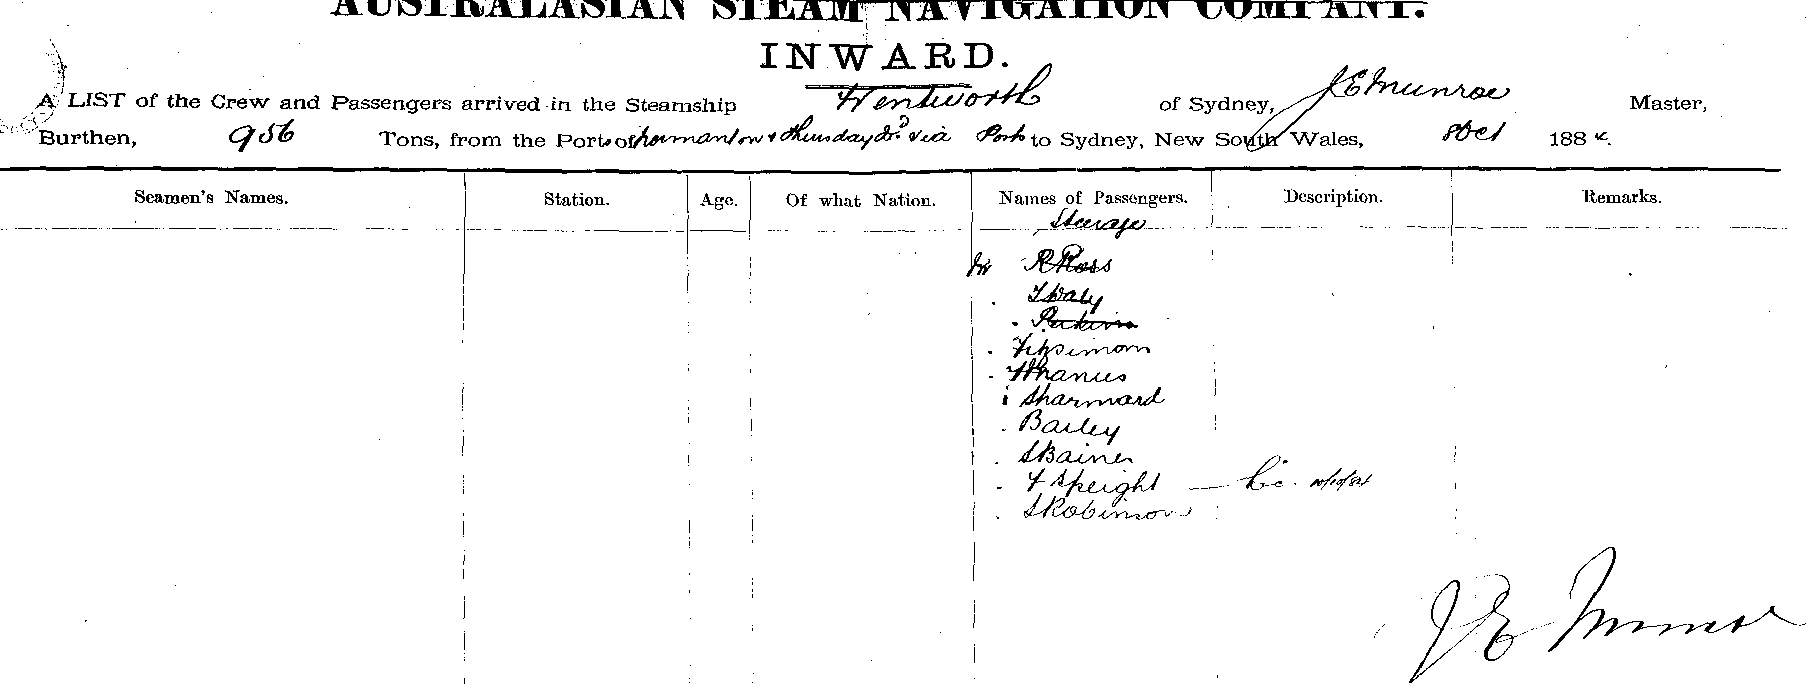 AUSTRALASIAN STEAM NAVIGATION COMPANY.
INWARD.
A LIST of the Crew and Passengers arrived in the Steamship Wentworth of Sydney, J E Munroe Master,
Burthen, 956 Tons, from the Ports of Normanton & Thursday Isd via Ports to Sydney, New South Wales, 8 Oct 1884.
Seamen's Names. Station. Age. Of what Nation. Names of Passengers. Description. Remarks.
Steerage
Mr R Ross
T Daly
Perkins
Fitzsimons
Sharmard
Bailey
S Baines
F Speight
S Robinson
J E Munroe